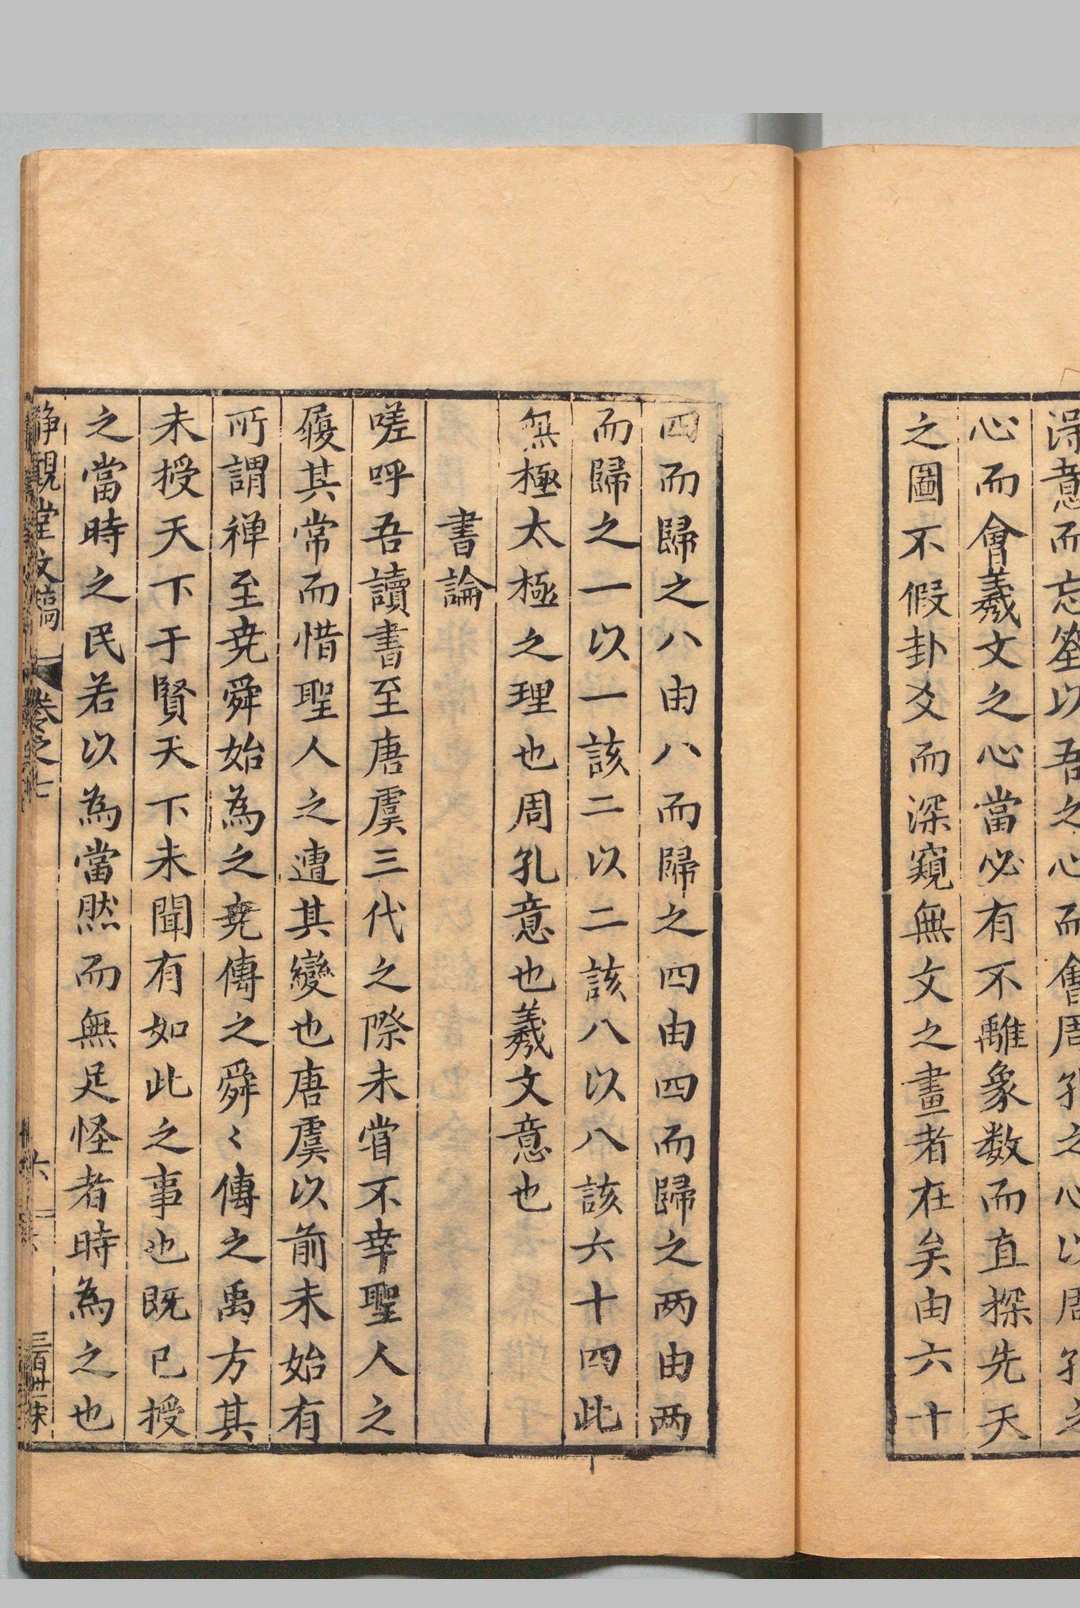 深意而忘筌以吾之心而會周孔之心以周孔之
心而會羲文之心當必有不離象数而直探先天
之圖不假卦爻而深窺無文之畫者在矣由六十
四而歸之八由八而歸之四由四而歸之两由两
而歸之一以一該二以二該八以八該六十四此
無極太極之理也周孔意也羲文意也
書論
嗟呼吾讀書至唐虞三代之際未嘗不幸聖人之
履其常而惜聖人之遭其變也唐虞以前未始有
所謂禅至尭舜始為之尭傳之舜〻傳之禹方其
未授天下于賢天下未聞有如此之事也既已授
之當時之民若以為當然而無足怪者時為之也
静觀堂文稿 卷之七